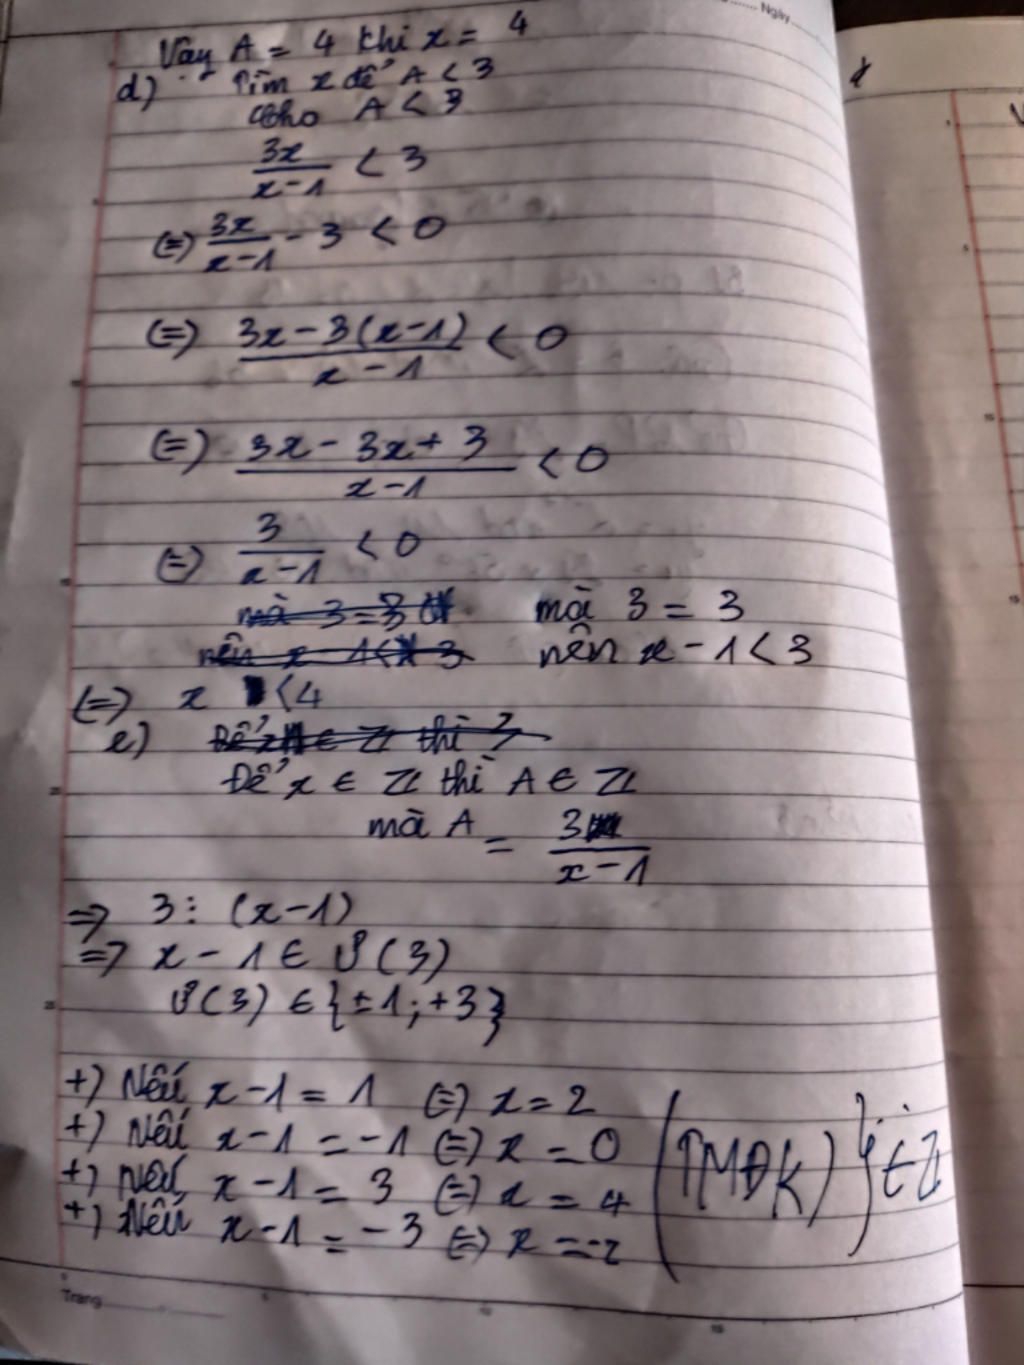 Ngày
Vậy A = 4 khi x = 4
d) Tìm x để A < 3
Cho A < 3
3x/(x-1) < 3
(=) 3x/(x-1) - 3 < 0
(=) (3x - 3(x-1))/(x-1) < 0
(=) (3x - 3x + 3)/(x-1) < 0
(=) 3/(x-1) < 0
mà 3 = 3
nên x - 1 < 3
(=) x < 4
e)
Để x ∈ Z thì A ∈ Z
mà A = 3/(x-1)
=> 3 ⋮ (x-1)
=> x - 1 ∈ Ư(3)
Ư(3) ∈ {±1; +3}
+) Nếu x - 1 = 1 (=) x = 2
+) Nếu x - 1 = -1 (=) x = 0
+) Nếu x - 1 = 3 (=) x = 4
+) Nếu x - 1 = -3 (=) x = -2
(TMĐK) } ∈ Z
Trang